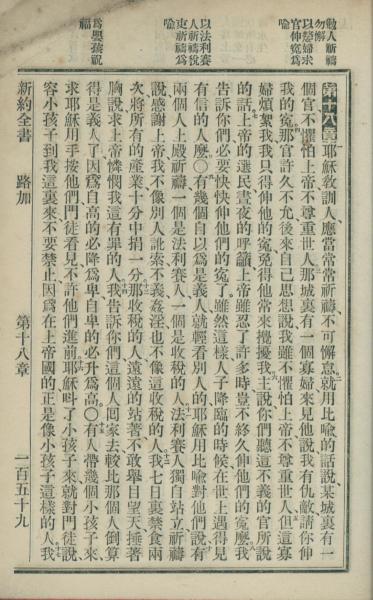 勸人祈禱
勿懈
以嫠婦求
官伸寃爲
喻
以法利賽
人祈禱稅
吏祈禱爲
喻
爲嬰孩祝
福
第十八章 耶穌敎訓人應當常常祈禱不可懈怠就用比喻的話說某城裏有一
個官不懼怕上帝不尊重世人那城裏有一個寡婦來見他說我有仇敵請你伸
我的寃那官許久不允後來自己思想說我雖不懼怕上帝不尊重世人但這寡
婦煩絮我我只得伸他的寃免得他常來攪擾我主說你們聽這不義的官所說
的話上帝的選民晝夜的呼籲上帝雖忍了許多時豈不終久伸他們的寃麽我
告訴你們必要快快伸他們的寃了雖然這樣人子降臨的時候在世上遇得見
有信的人麽○有幾個自以爲是義人就輕看別人的耶穌用比喻對他們說有
兩個人上殿祈禱一個是法利賽人一個是收稅的人法利賽人獨自站立祈禱
說感謝上帝我不像別人訛索不義姦淫也不像這收稅的人我七日裏禁食兩
次將所有的產業十分中捐一分那收稅的人遠遠的站著不敢舉目望天捶著
胸說求上帝憐憫我這有罪的人我告訴你們這個人囘家去較比那個人倒算
得是義人了因爲自高的必降爲卑自卑的必升爲高○有人帶幾個小孩子來
求耶穌用手按他們門徒看見不許他們進前耶穌呌了小孩子來就對門徒說
容小孩子到我這裏來不要禁止因爲在上帝國的正是像小孩子這樣的人我
新約全書 路加 第十八章 一百五十九